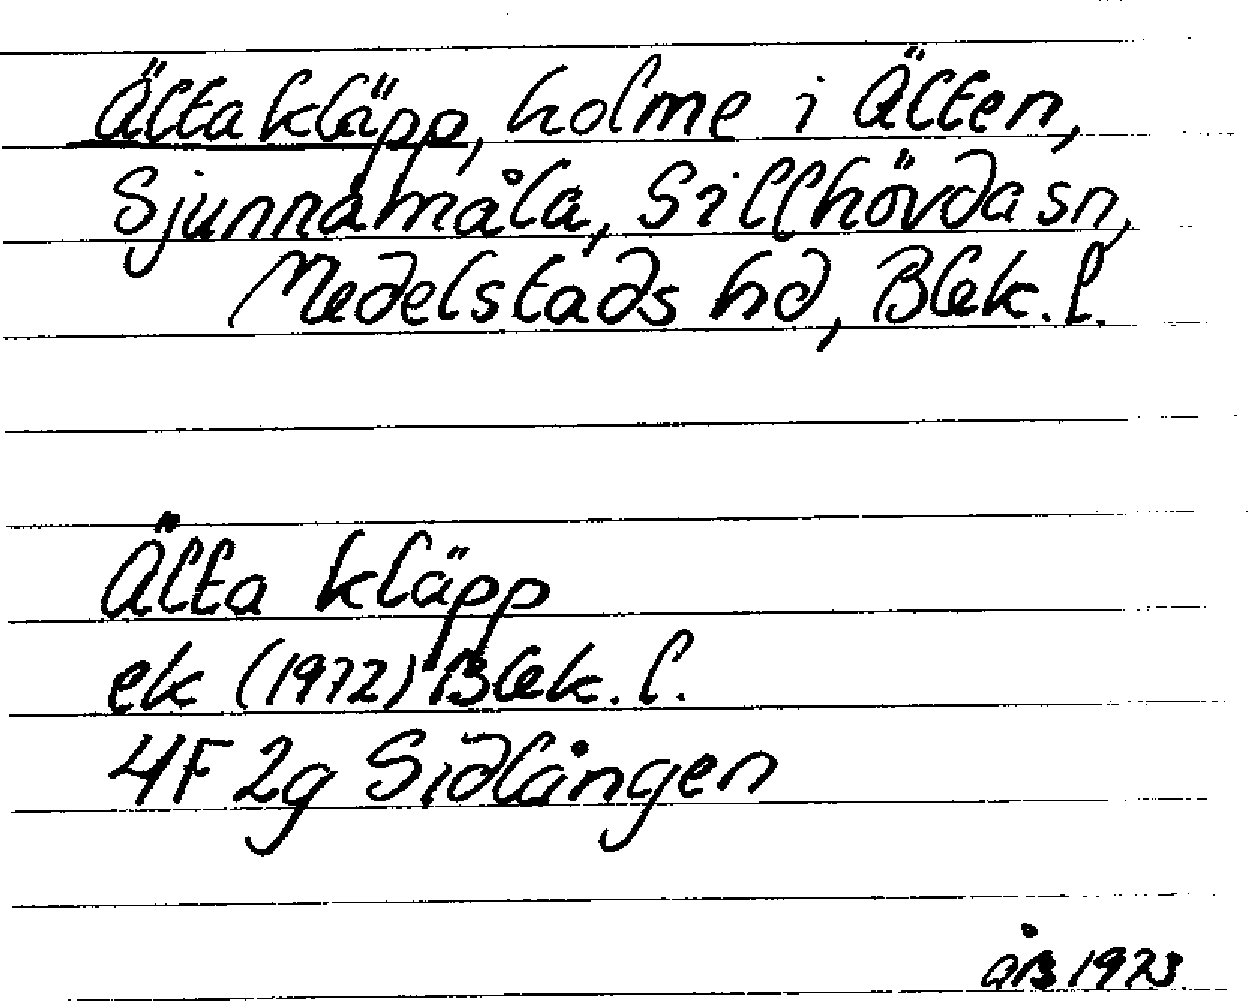 Älta kläpp, holme i Älten,
Sjunnamåla, Sillhövda sn,
Medelstads hd, Blek. l.
Älta kläpp
ek (1972) Blek. l.
4F 2g Sidlången
ÅB 1973